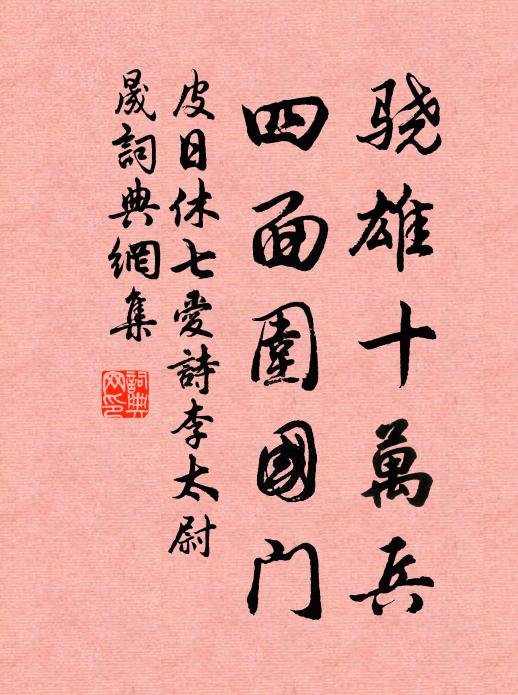 骁雄十萬兵
四面圍國门
皮日休七愛詩李太尉
晟詞典網集
詞典
网印